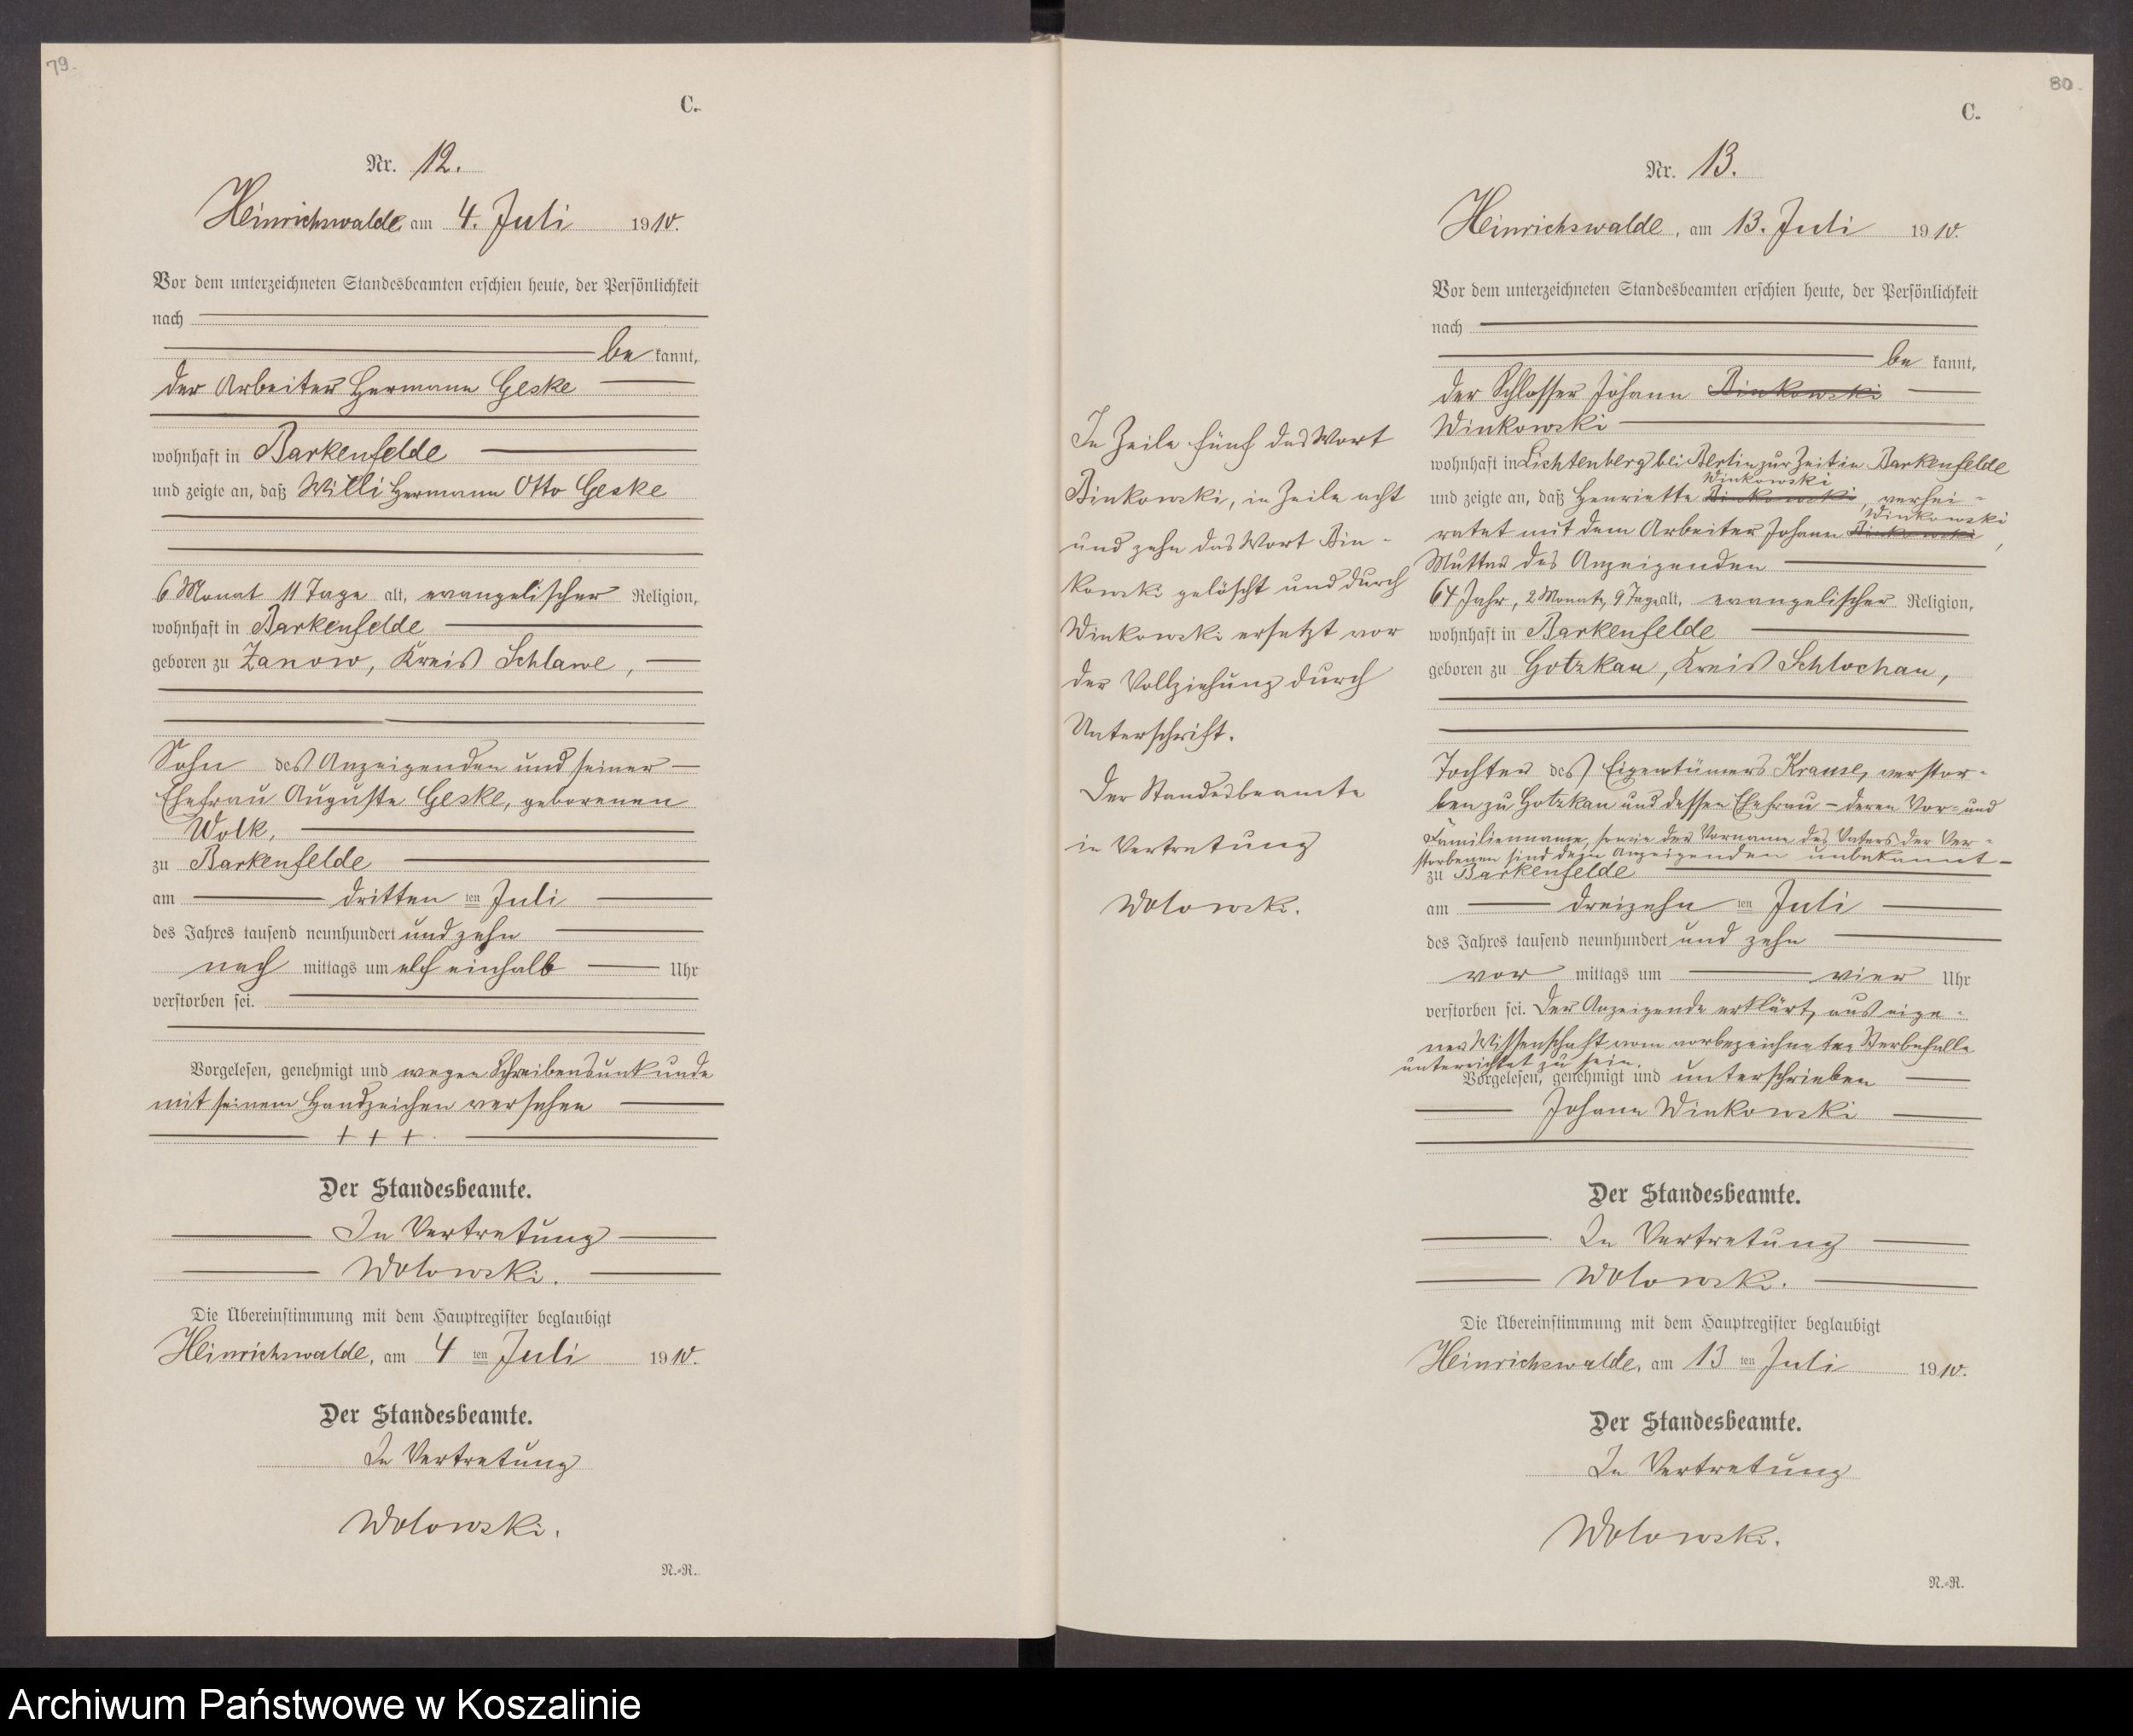 79.
C.
Nr. 12.
Heinrichswalde am 4. Juli 1910.
Vor dem unterzeichneten Standesbeamten erschien heute, der Persönlichkeit
nach
be kannt,
der Arbeiter Hermann Geske
wohnhaft in Barkenfelde
und zeigte an, daß Willi Hermann Otto Geske
6 Monat 11 Tage alt, evangelischer Religion,
wohnhaft in Barkenfelde
geboren zu Zanow, Kreis Schlawe,
Sohn des Anzeigenden und seiner
Ehefrau Auguste Geske, geborenen
Wolk,
zu Barkenfelde
am dritten ten Juli
des Jahres tausend neunhundert und zehn
nach mittags um elf einhalb Uhr
verstorben sei.
Vorgelesen, genehmigt und wegen Schreibensunkunde
mit seinem Handzeichen versehen
+ + +.
Der Standesbeamte.
In Vertretung
Wolowski.
Die Übereinstimmung mit dem Hauptregister beglaubigt
Heinrichswalde, am 4 ten Juli 1910.
Der Standesbeamte.
In Vertretung
Wolowski.
N.=R.
80.
C.
Nr. 13.
Heinrichswalde, am 13. Juli 1910.
Vor dem unterzeichneten Standesbeamten erschien heute, der Persönlichkeit
nach
be kannt,
der Schlosser Johann Binkowski
Winkowski
wohnhaft in Lichtenberg bei Berlin zur Zeit in Barkenfelde
Winkowski
und zeigte an, daß Henriette Binkowski, verhei-
Winkowski
ratet mit dem Arbeiter Johann Binkowski,
Mutter des Anzeigenden
64 Jahr, 2 Monate, 9 Tage alt, evangelischer Religion,
wohnhaft in Barkenfelde
geboren zu Gotzkau, Kreis Schlochau,
Tochter des Eigentümers Krause, verstor-
ben zu Gotzkau und dessen Ehefrau – deren Vor- und
Familienname, sowie der Vorname des Vaters der Ver-
storbenen sind dem Anzeigenden unbekannt –
zu Barkenfelde
am dreizehn ten Juli
des Jahres tausend neunhundert und zehn
vor mittags um vier Uhr
verstorben sei. Der Anzeigende erklärt, aus eige-
ner Wissenschaft vom vorbezeichneten Sterbefalle
unterrichtet zu sein.
Vorgelesen, genehmigt und unterschrieben
Johann Winkowski
Der Standesbeamte.
In Vertretung
Wolowski.
Die Übereinstimmung mit dem Hauptregister beglaubigt
Heinrichswalde, am 13 ten Juli 1910.
Der Standesbeamte.
In Vertretung
Wolowski.
N.=R.
In Zeile fünf das Wort
Binkowski, in Zeile acht
und zehn das Wort Bin-
kowski gelöscht und durch
Winkowski ersetzt vor
der Vollziehung durch
Unterschrift.
Der Standesbeamte
in Vertretung
Wolowski.
Archiwum Państwowe w Koszalinie